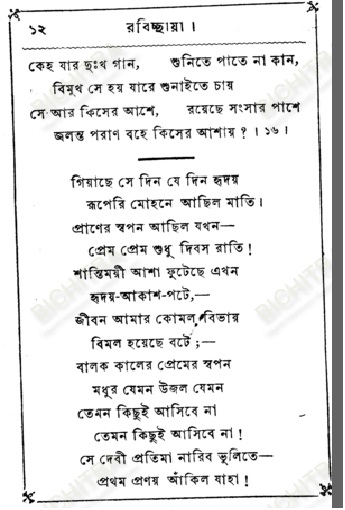 ১২ রবিচ্ছায়া।
কেহ যার দুঃখ গান, শুনিতে পাতে না কান,
বিমুখ সে হয় যারে শুনাইতে চায়
সে আর কিসের আশে, রয়েছে সংসার পাশে
জলন্ত পরাণ বহে কিসের আশায়? । ১৬।
গিয়াছে সে দিন যে দিন হৃদয়
রূপেরি মোহনে আছিল মাতি।
প্রাণের স্বপন আছিল যখন—
প্রেম প্রেম শুধু দিবস রাতি!
শান্তিময়ী আশা ফুটেছে এখন
হৃদয়-আকাশ-পটে,—
জীবন আমার কোমল বিভায়
বিমল হয়েছে বটে;—
বালক কালের প্রেমের স্বপন
মধুর যেমন উজল যেমন
তেমন কিছুই আসিবে না
তেমন কিছুই আসিবে না!
সে দেবী প্রতিমা নারিব ভুলিতে—
প্রথম প্রণয় আঁকিল যাহা!